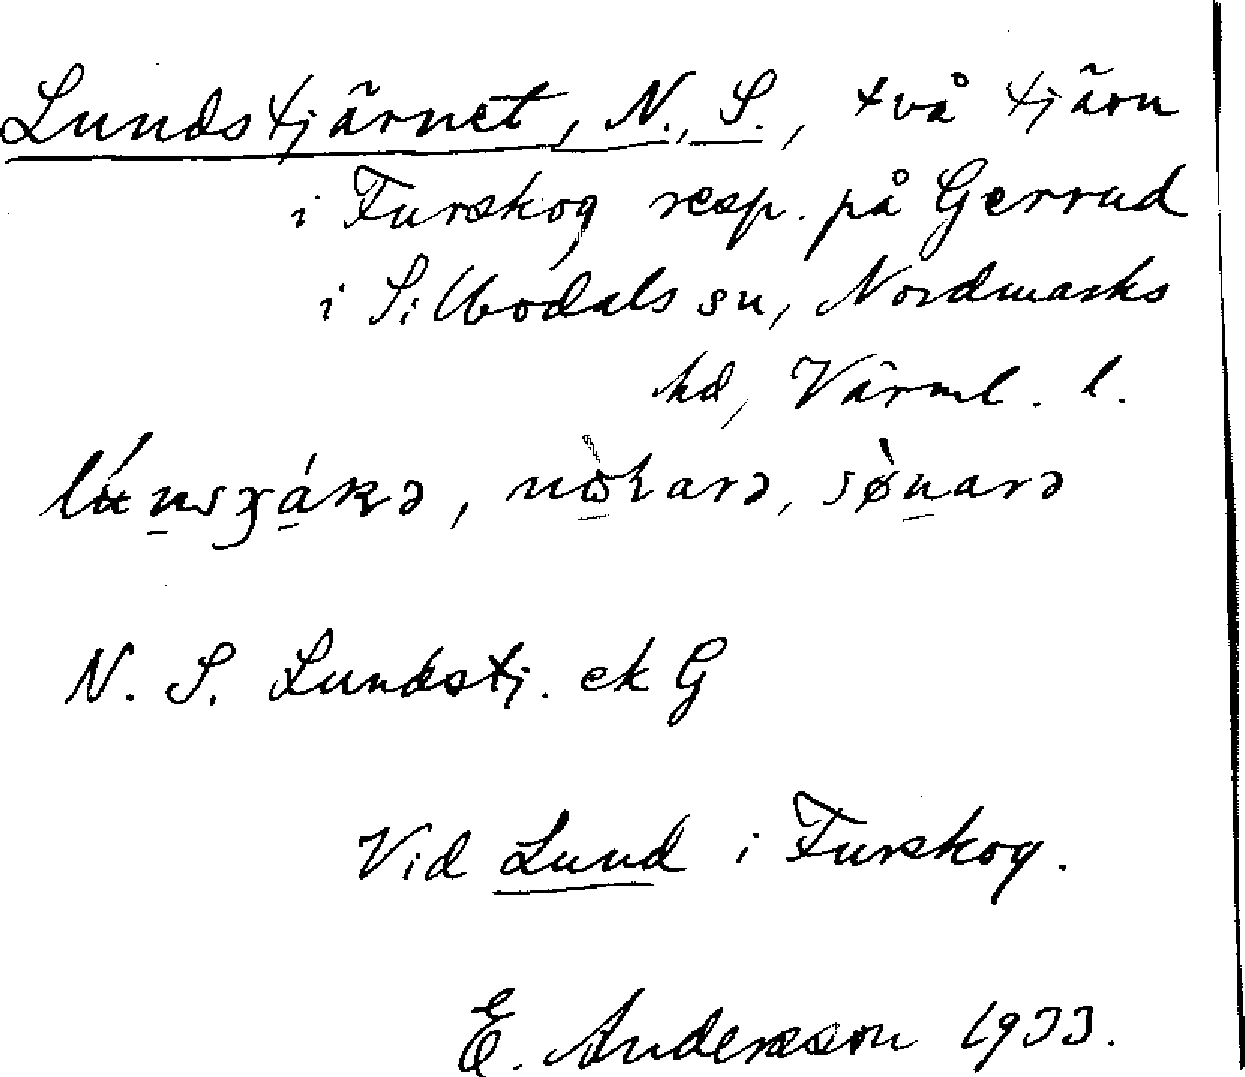 Lundstjärnet, N., S., två tjärn
i Furskog resp. på Gerrud
i Silbodals sn, Nordmarks
hd, Värml. l.
N. S. Lundstj. ek G
Vid Lund i Furskog.
E. Andersson 1933.